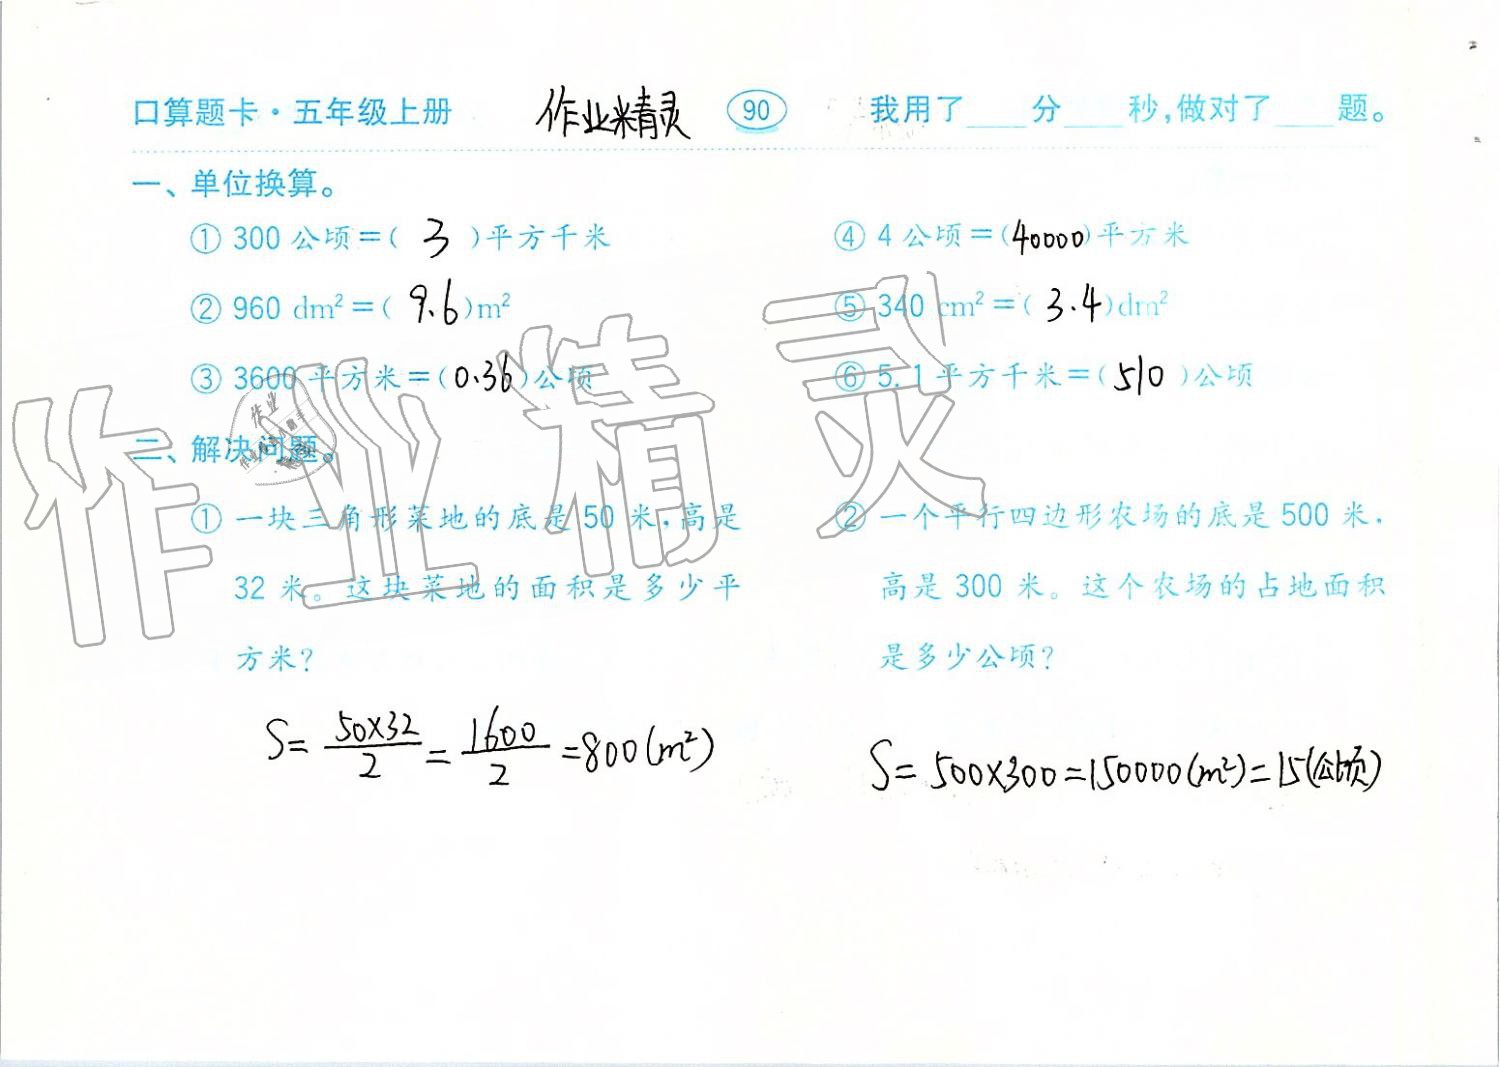 口算题卡·五年级上册 作业精灵 90 我用了____分____秒,做对了____题。
一、单位换算。
① 300 公顷=( 3 )平方千米 ④ 4 公顷=(40000)平方米
② 960 dm²=( 9.6 )m² ⑤ 340 cm²=( 3.4 )dm²
③ 3600 平方米=(0.36)公顷 ⑥ 5.1 平方千米=( 510 )公顷
作业精灵
二、解决问题。
① 一块三角形菜地的底是 50 米,高是
32 米。这块菜地的面积是多少平
方米?
S= 50×32/2 = 1600/2 =800(m²)
② 一个平行四边形农场的底是 500 米,
高是 300 米。这个农场的占地面积
是多少公顷?
S= 500×300=150000(m²)=15(公顷)